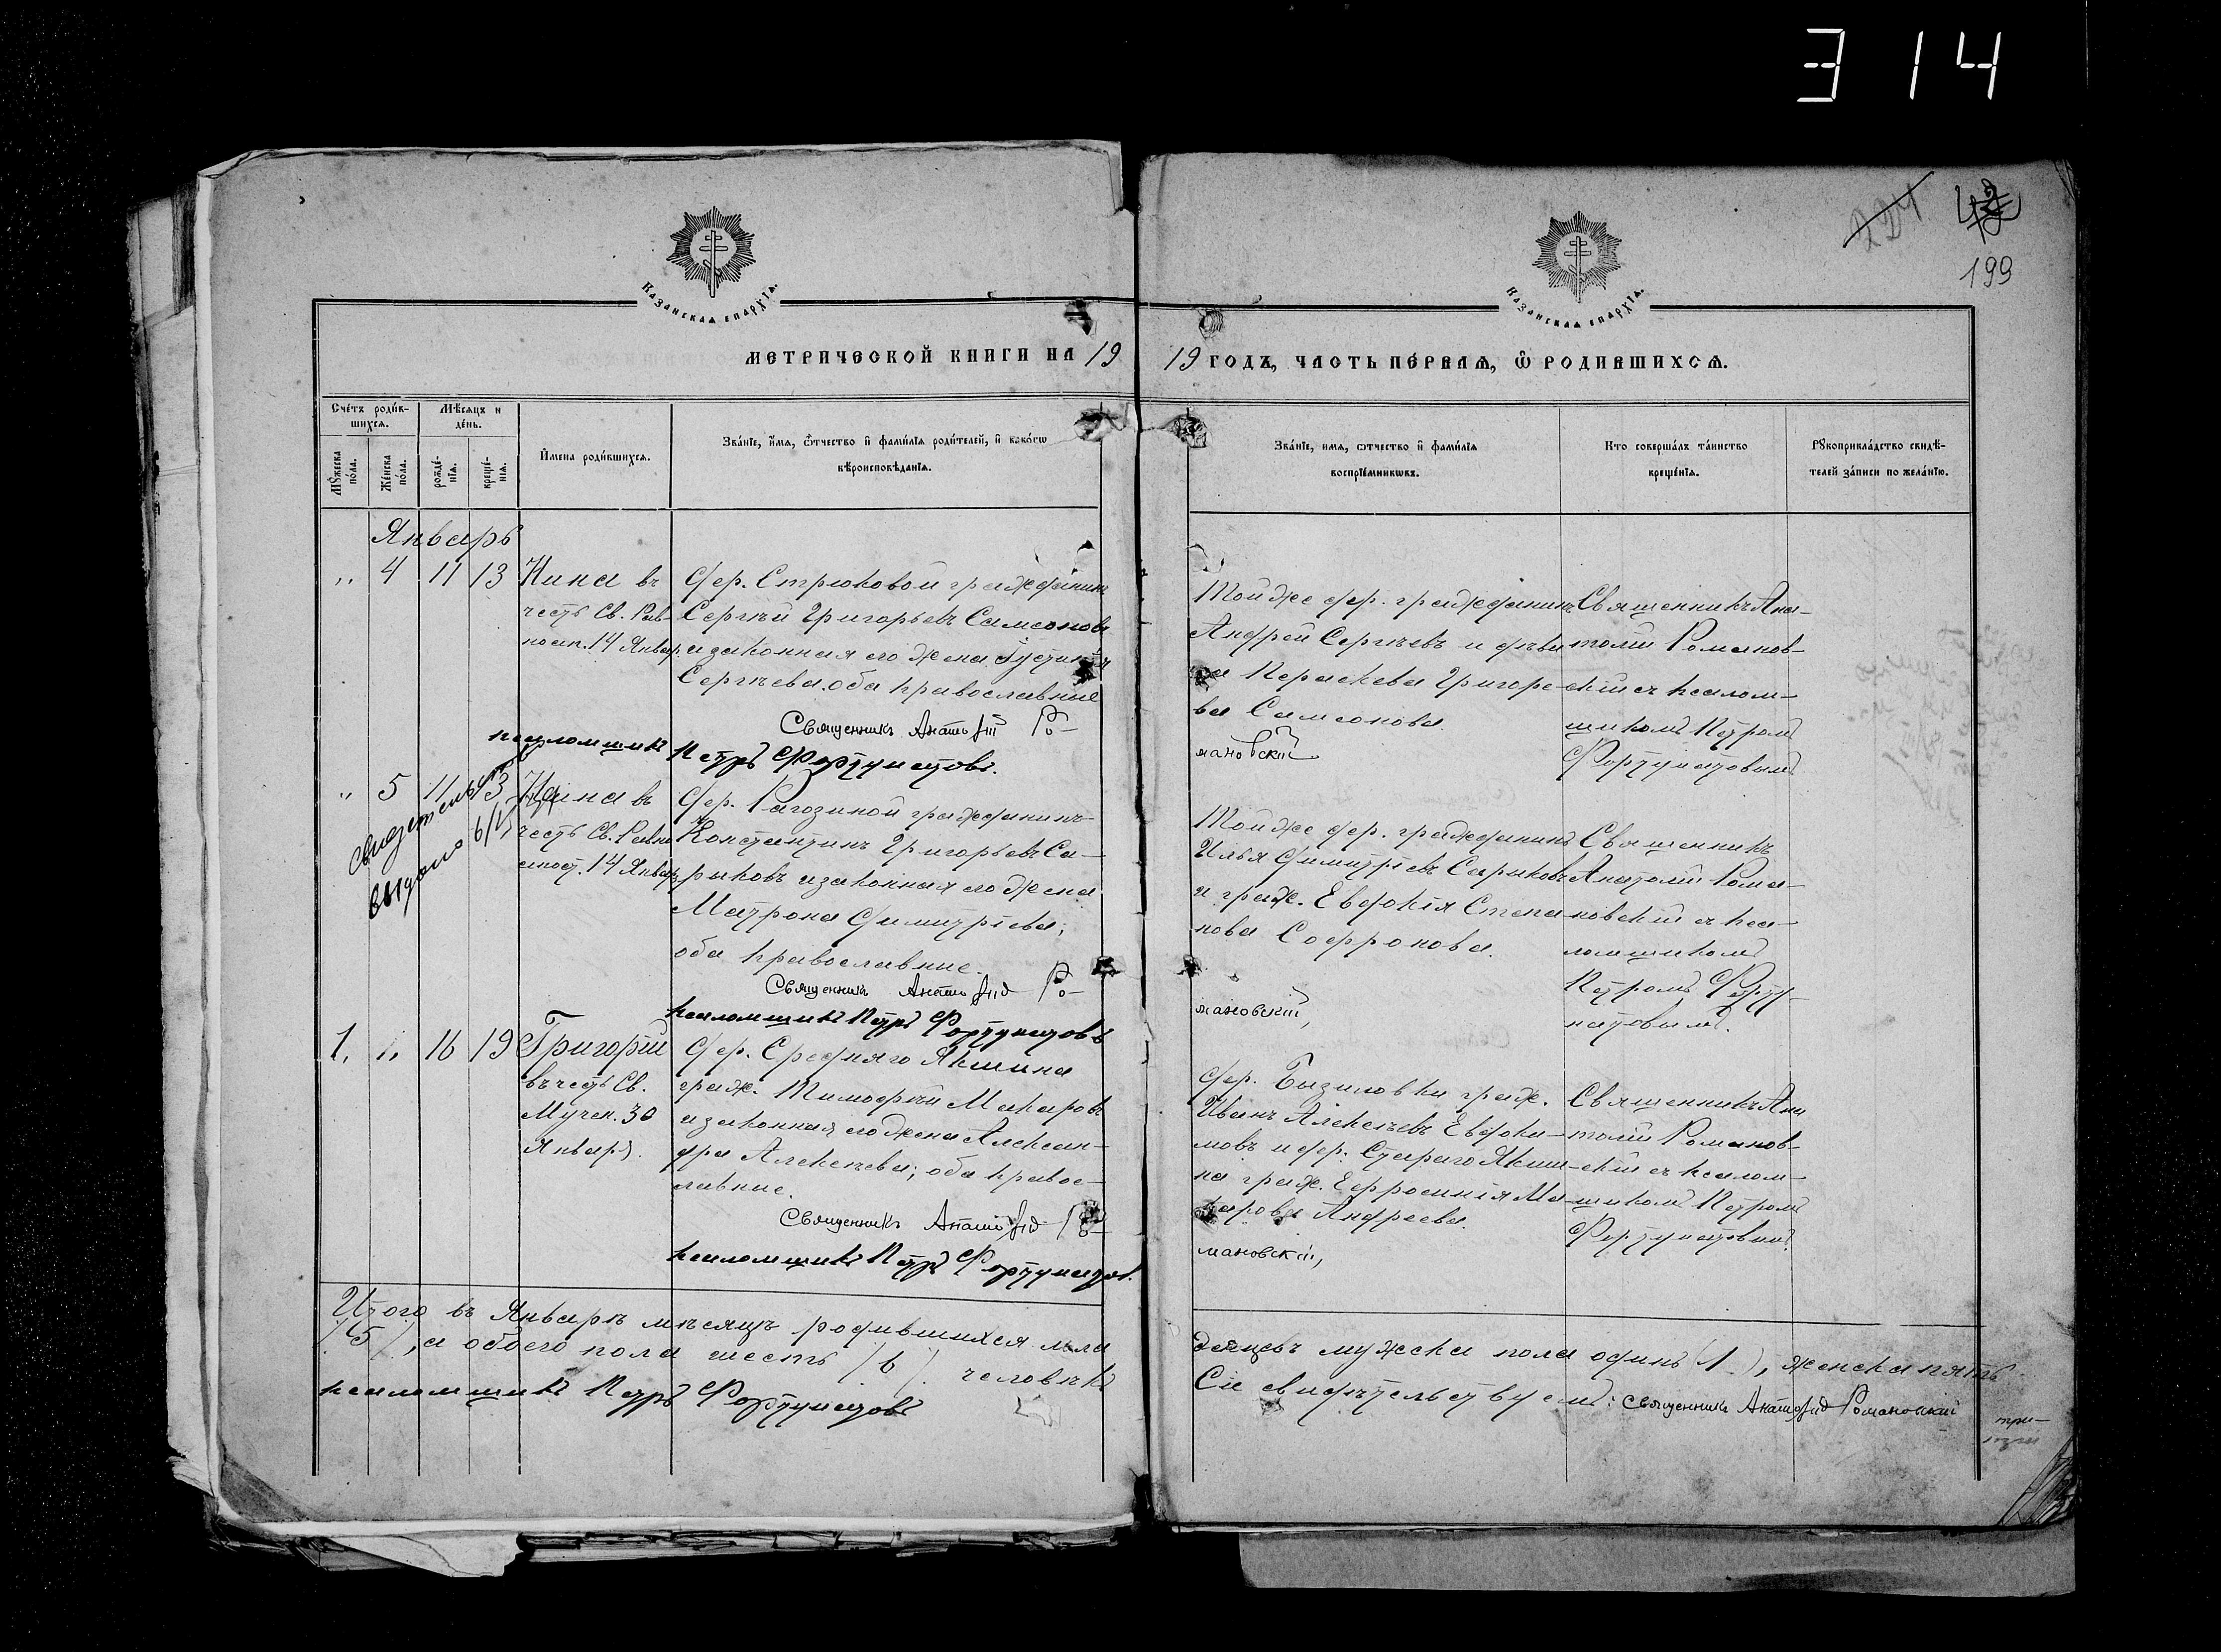 314
224
42
199
Казанская епархїя.
Казанская епархїя.
метрической книги на 19
19 годъ, часть первая, ѿ родившихся.
Счетъ родившихся.
Мѣсяцъ и день.
Мужеска пола.
Женска пола.
рожденія.
крещенія.
Имена родившихся.
Званіе, имя, отчество и фамилія родителей, и какогѡ
вѣроисповѣданія.
Званіе, имя, ѡтчество и фамилія
воспріемникѡвъ.
Кто совершалъ таинство
крещенія.
Рукоприкладство свидѣ-
телей записи по желанію.
Январь
„ 4 11 13 Нина въ
честь Св. Рав-
ноап. 14 Январ.
дер. Стрюковой гражданинъ
Сергѣй Григорьевъ Самсоновъ
и законная его жена Іустинія
Сергѣева. оба православные
Священникъ Анатолій Ро-
псаломщикъ Петръ Фортунатовъ.
Той же дер. гражданинъ
Андрей Сергѣевъ и дѣви
ца Параскева Григорье-
ва Самсонова.
мановскій
Священникъ Ана-
толій Романов-
скій съ псалом-
щикомъ Петромъ
Фортунатовымъ
„ 5 11 13 Нина въ
честь Св. Равно
апост. 14 Январ.
свидетельство
выдано 6/IV
дер. Рагозиной гражданинъ
Константинъ Григорьевъ Са-
рыковъ и законная его жена
Матрона Димитріева;
оба православные.
Священникъ Анатолій Ро-
псаломщикъ Петръ Фортунатовъ
Той же дер. гражданинъ
Илья Димитріевъ Сарыковъ
и граж. Евдокія Степа
нова Софронова.
мановскій
Священникъ
Анатолій Рома-
новскій съ пса-
ломщикомъ
Петромъ Форту-
натовымъ.
1. „ 16 19 Григорій
въ честь Св.
Мучен. 30
Января.
дер. Средняго Якшина
граж. Тимофей Макаровъ
и законная его жена Алексан-
дра Алексѣева; оба право-
славные.
Священникъ Анатолій Ро-
псаломщикъ Петръ Фортунатов.
дер. граж.
Иванъ Алексѣевъ Евдоки-
мовъ и дер. Стараго Якши-
на граж. Ефросинія Ма-
карова Андреева.
мановскій,
Священникъ Ана
толій Романов-
скій съ псалом-
щикомъ Петромъ
Фортунатовым.
Итого въ Январѣ мѣсяцѣ родившихся мла
денцевъ мужска пола одинъ (1), женска пять
(5), а обоего пола шесть (6). человѣкъ
Сіе свидѣтельствуемъ: священникъ Анатолій Романовскій
псаломщикъ Петръ Фортунатовъ